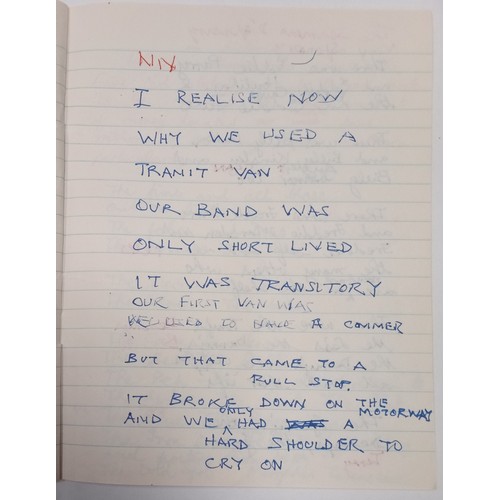 NIX
I REALISE NOW
WHY WE USED A
TRANIT VAN
OUR BAND WAS
ONLY SHORT LIVED
IT WAS TRANSITORY
OUR FIRST VAN WAS
WE USED TO HAVE A COMMER
BUT THAT CAME TO A
FULL STOP.
IT BROKE DOWN ON THE MOTORWAY
AND WE ONLY HAD WAS A
HARD SHOULDER TO
CRY ON